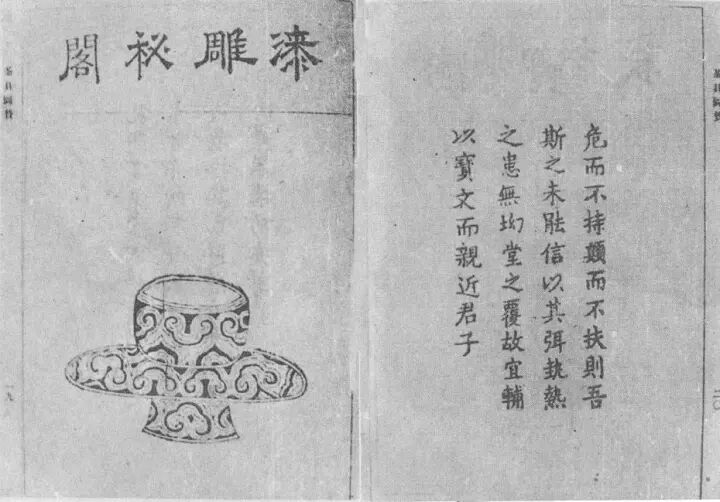 漆雕秘閣
茶具圖贊
一九
危而不持顛而不扶則吾
斯之未能信以其弭執熱
之患無坳堂之覆故宜輔
以寶文而親近君子
茶具圖贊
二〇